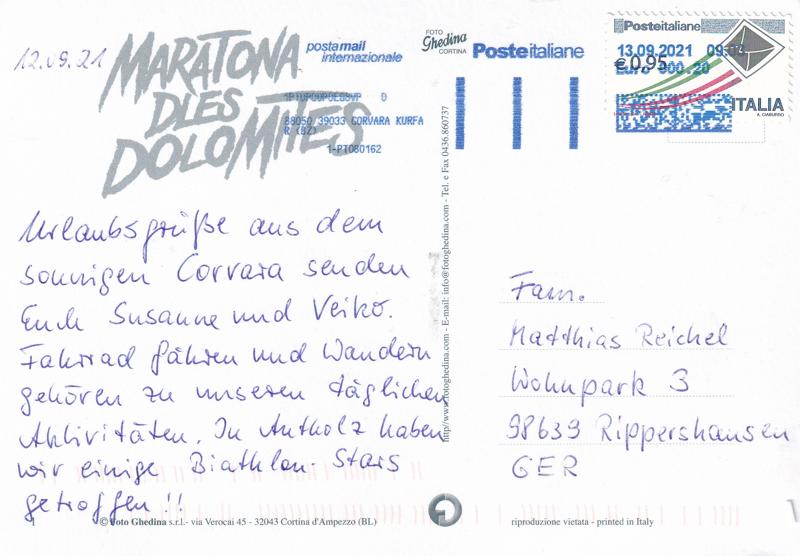 12.09.21
MARATONA
DLES
DOLOMITES
postamail
internazionale
FOTO
Ghedina
CORTINA
Posteitaliane
Posteitaliane
13.09.2021 09:
€0,95
Euro 000.20
ITALIA
88050 39033 CORVARA KURFA
R (BZ)
1-PT080162
Urlaubsgrüße aus dem
sonnigen Corvara senden
Euch Susanne und Veiko.
Fahrrad fahren und Wandern
gehören zu unseren täglichen
Aktivitäten. In Antholz haben
wir einige Biathlon-Stars
getroffen!!
http//www.fotoghedina.com - E-mail: info@fotoghedina.com - Tel. e Fax 0436.860737
Fam.
Matthias Reichel
Wohnpark 3
98639 Rippershausen
GER
1
© Foto Ghedina s.r.l.- via Verocai 45 - 32043 Cortina d'Ampezzo (BL)
riproduzione vietata - printed in Italy